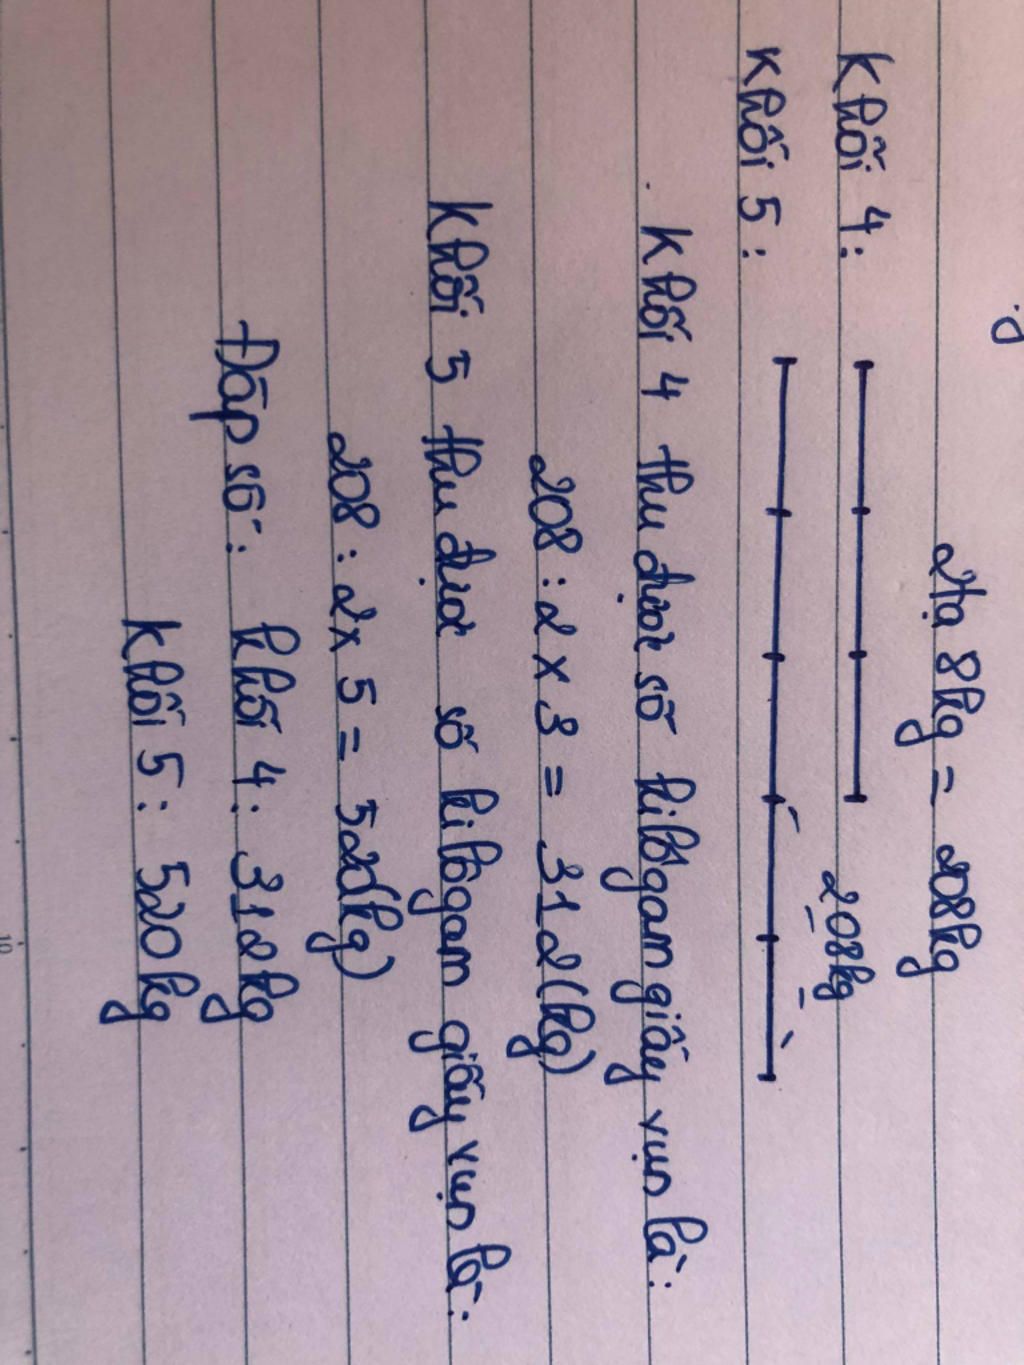 2tạ 8kg = 208kg
Khối 4:
208kg
Khối 5:
Khối 4 thu được số kilôgam giấy vụn là:
208 : 2 x 3 = 312(kg)
Khối 5 thu được số kilôgam giấy vụn là:
208 : 2 x 5 = 520(kg)
Đáp số: khối 4: 312kg
Khối 5: 520kg
10